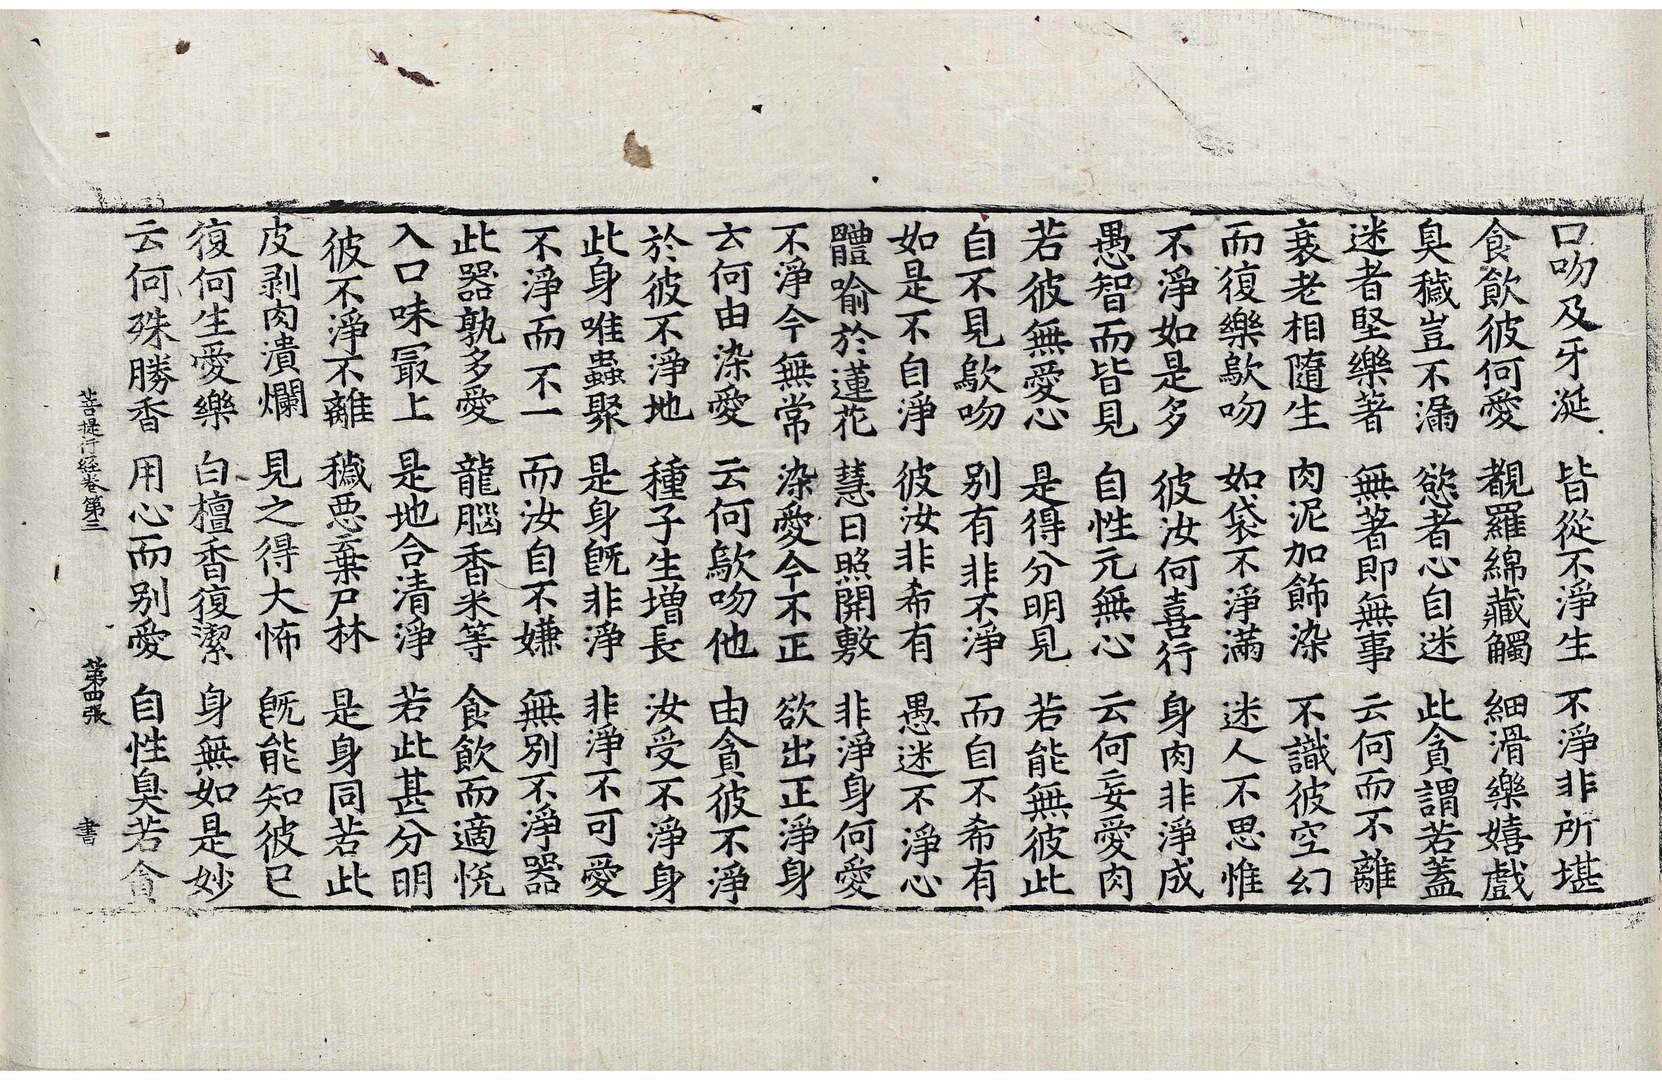 口吻及牙涎 皆從不淨生 不淨非所堪
食飲彼何愛 覩羅綿藏觸 細滑樂嬉戲
臭穢豈不漏 慾者心自迷 此貪謂若蓋
迷者堅樂著 無著即無事 云何而不離
衰老相隨生 肉泥加飾染 不識彼空幻
而復樂歍吻 如袋不淨滿 迷人不思惟
不淨如是多 彼汝何喜行 身肉非淨成
愚智而皆見 自性元無心 云何妄愛肉
若彼無愛心 是得分明見 若能無彼此
自不見歍吻 別有非不淨 而自不希有
如是不自淨 彼汝非希有 愚迷不淨心
體喻於蓮花 慧日照開敷 非淨身何愛
不淨今無常 染愛今不正 欲出正淨身
云何由染愛 云何歍吻他 由貪彼不淨
於彼不淨地 種子生增長 汝受不淨身
此身唯蟲聚 是身旣非淨 非淨不可愛
不淨而不一 而汝自不嫌 無別不淨器
此器孰多愛 龍腦香米等 食飲而適悅
入口味㝡上 是地合清淨 若此甚分明
彼不淨不離 穢惡棄尸林 是身同若此
皮剥肉潰爛 見之得大怖 旣能知彼已
復何生愛樂 白檀香復潔 身無如是妙
云何殊勝香 用心而別愛 自性臭若貪
菩提行經卷第三 第四張 書